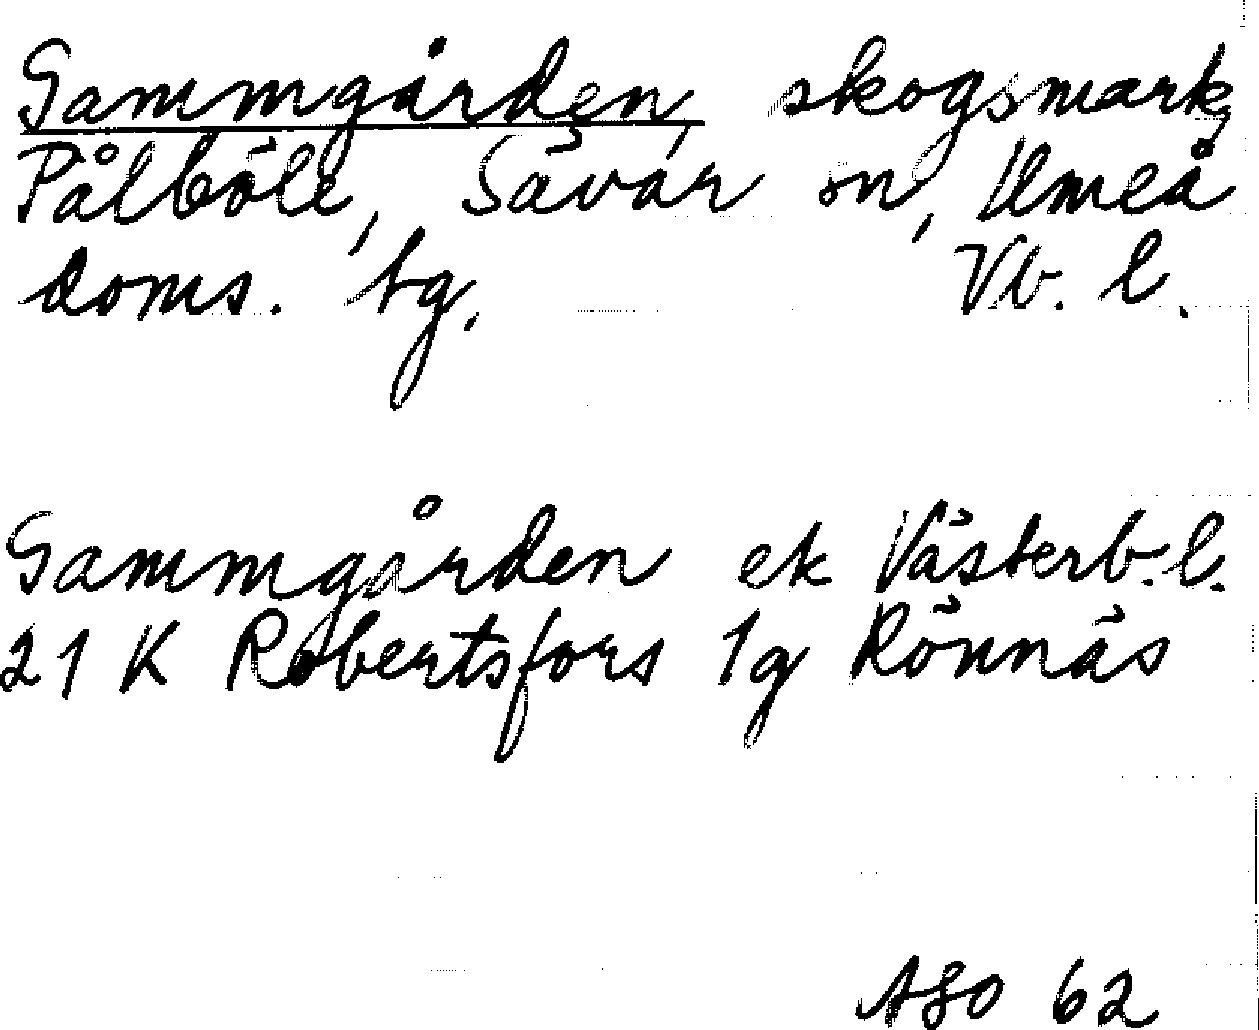 Gammgården, skogsmark,
Pålböle, Sävar sn, Umeå
doms. tg. Vb. l.
Gammgården ek Västerb. l.
21 K Robertsfors 1g Rönnäs
ASO 62